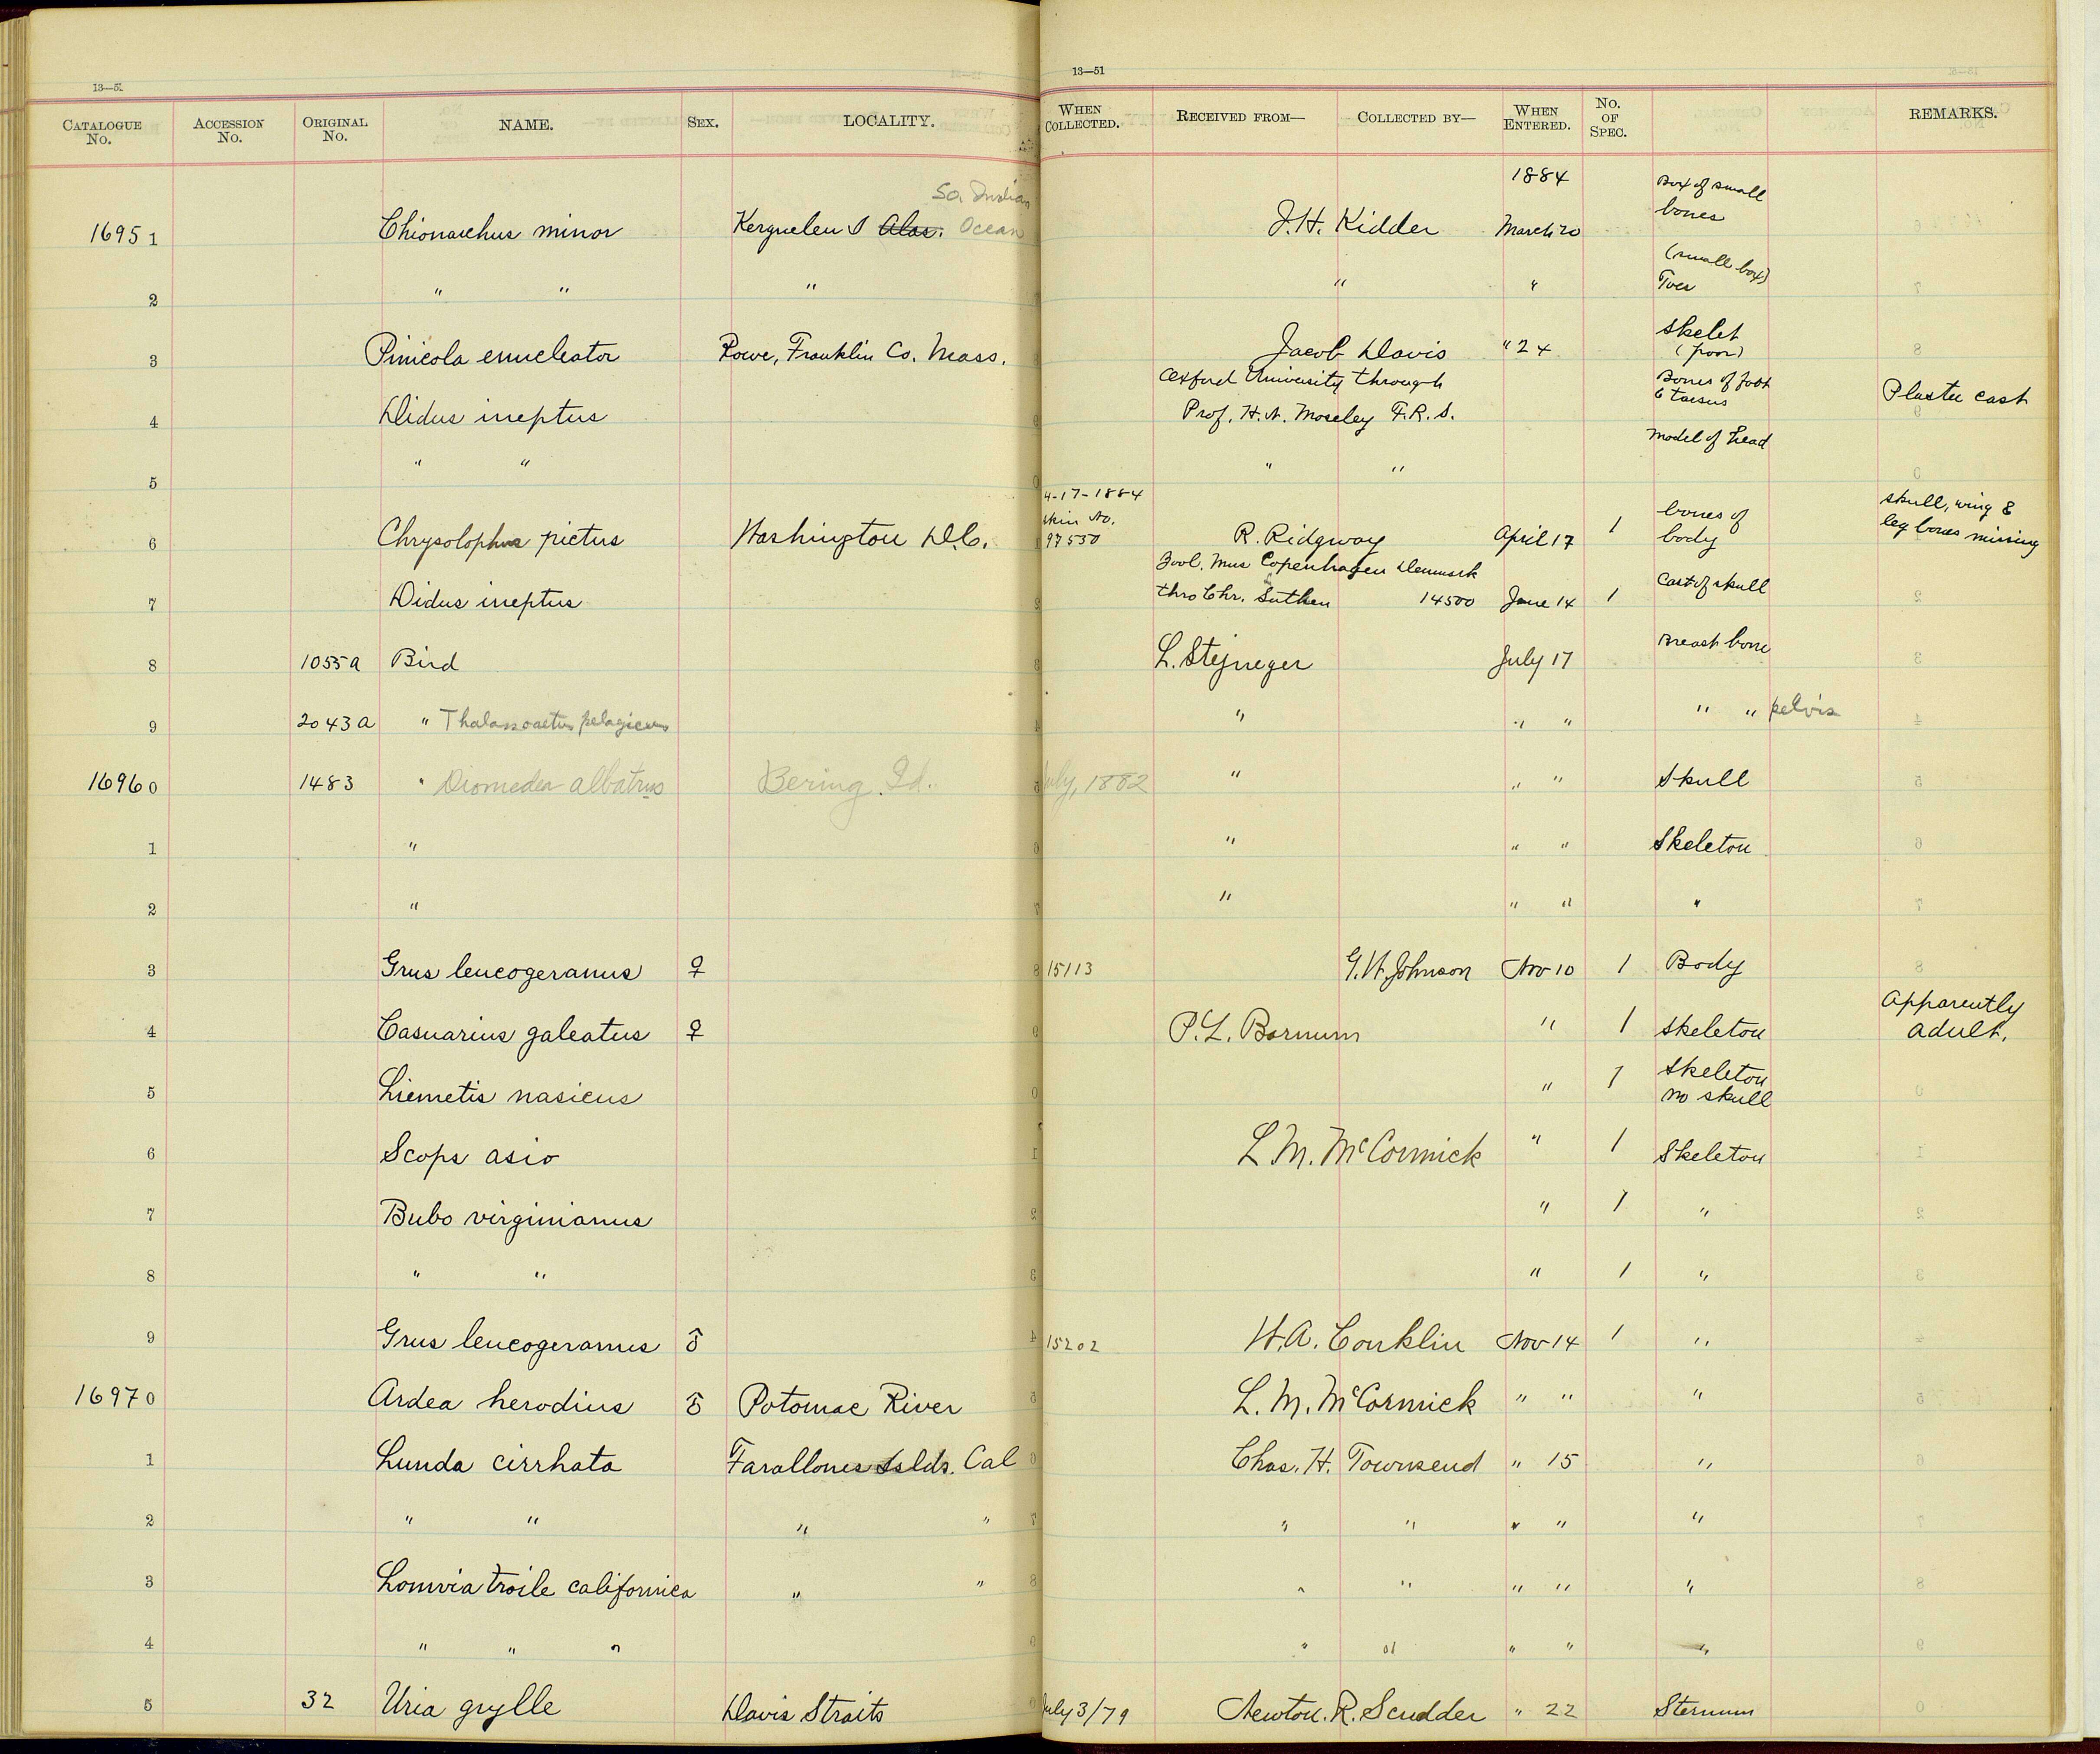 13—51
CATALOGUE No. ACCESSION No. ORIGINAL No. NAME. SEX. LOCALITY.
So. Indian
16951 Chionarchus minor Kerguelen I Alas. Ocean
2 " " "
3 Pinicola enucleator Rowe, Franklin Co. Mass.
4 Didus ineptus
5 " "
6 Chrysolophus pictus Washington D.C.
7 Didus ineptus
8 1055a Bird
9 2043a " Thalassoaetus pelagicus
16960 1483 " Diomedea albatrus Bering Id.
1 "
2 "
3 Grus leucogeranus ♀
4 Casuarius galeatus ♀
5 Licmetis nasicus
6 Scops asio
7 Bubo virginianus
8 " "
9 Grus leucogeranus ♂
16970 Ardea herodius ♂ Potomac River
1 Lunda cirrhata Farallones Islds. Cal
2 " " " "
3 Lomvia troile californica " "
4 " " "
5 32 Uria grylle Davis Straits
13—51
WHEN COLLECTED. RECEIVED FROM— COLLECTED BY— WHEN ENTERED. No. OF SPEC. REMARKS.
1884 Box of small
J.H. Kidder March 20 bones
(small box)
" " Toes
Jacob Davis " 24 Skelet
(poor)
Oxford University through Bones of foot
Prof. H. N. Moseley F.R.S. & tarsus Plaster cast
model of head
" "
4-17-1884
skin No. bones of skull, wing &
97550 R. Ridgway April 17 1 body leg bones missing
Zool. Mus Copenhagen Denmark
thro Chr. Lutken 14500 June 14 1 Cast of skull
L. Stejneger July 17 Breast bone
" " " " " pelvis
July, 1882 " " " Skull
" " " Skeleton
" " " "
15113 G.W. Johnson Nov 10 1 Body
Apparently
P.T. Barnum " 1 skeleton adult.
" 1 Skeleton
no skull
L. M. McCormick " 1 Skeleton
" 1 "
" 1 "
15202 W.A. Conklin Nov 14 1 "
L. M. McCormick " " "
Chas. H. Townsend " 15 "
" " " " "
" " " " "
" " " " "
July 3/79 Newton. R. Scudder " 22 Sternum